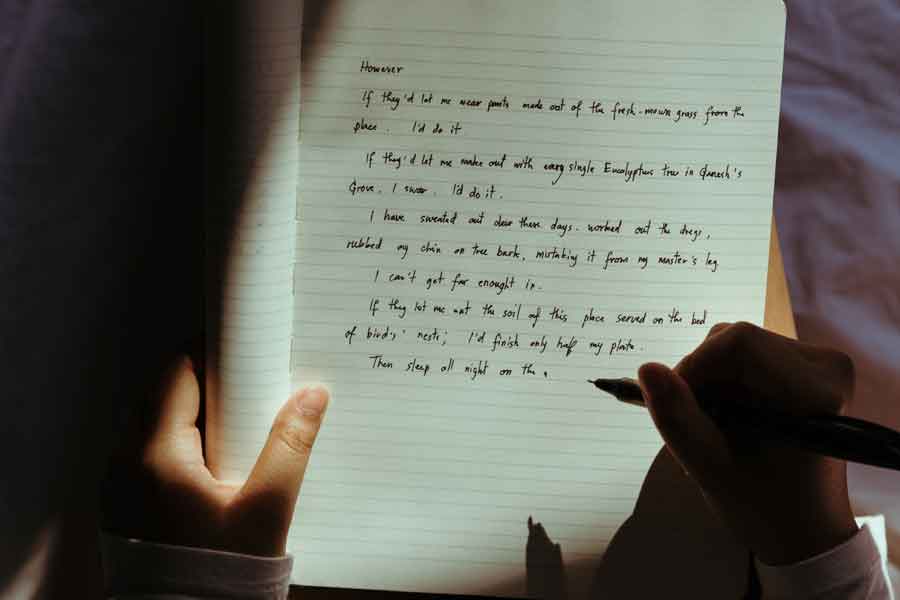 However
If they'd let me wear pants made out of the fresh-mown grass from the
place. I'd do it
If they'd let me make out with every single Eucalyptus tree in Ganesh's
Grove, I swear. I'd do it.
I have sweated out clear these days. worked out the dregs,
rubbed my chin on tree bark, mistaking it from my master's leg
I can't get far enought in.
If they let me eat the soil of this place served on the bed
of bird's' nests; I'd finish only half my plate.
Then sleep all night on the